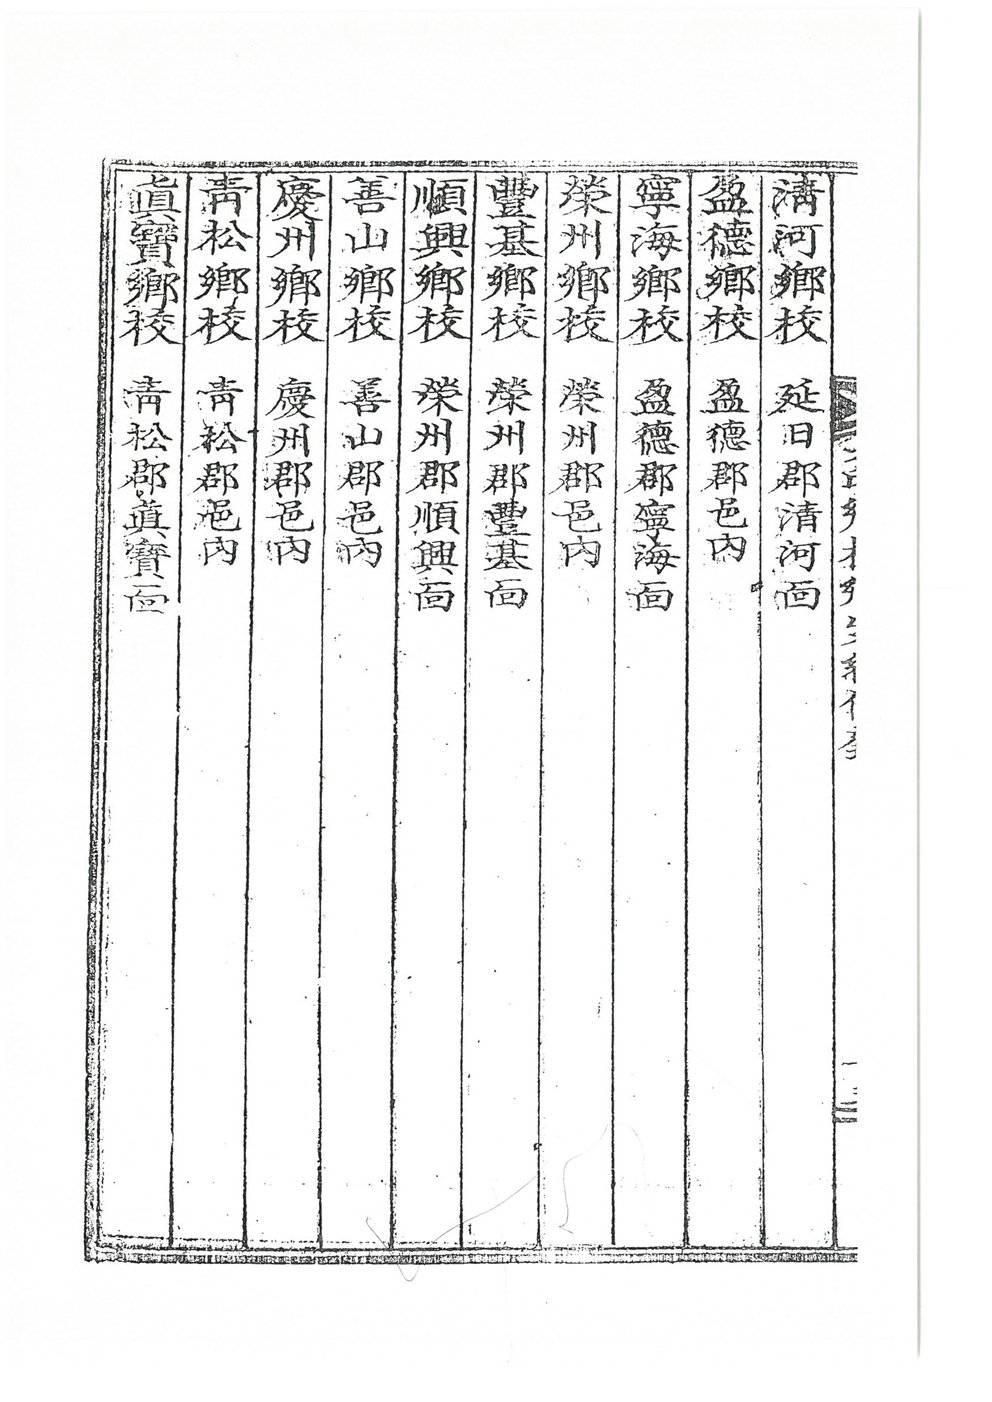 淸河鄕校 延日郡淸河面
盈德鄕校 盈德郡邑內
寧海鄕校 盈德郡寧海面
榮州鄕校 榮州郡邑內
豐基鄕校 榮州郡豐基面
順興鄕校 榮州郡順興面
善山鄕校 善山郡邑內
慶州鄕校 慶州郡邑內
靑松鄕校 靑松郡邑內
眞寶鄕校 靑松郡眞寶面